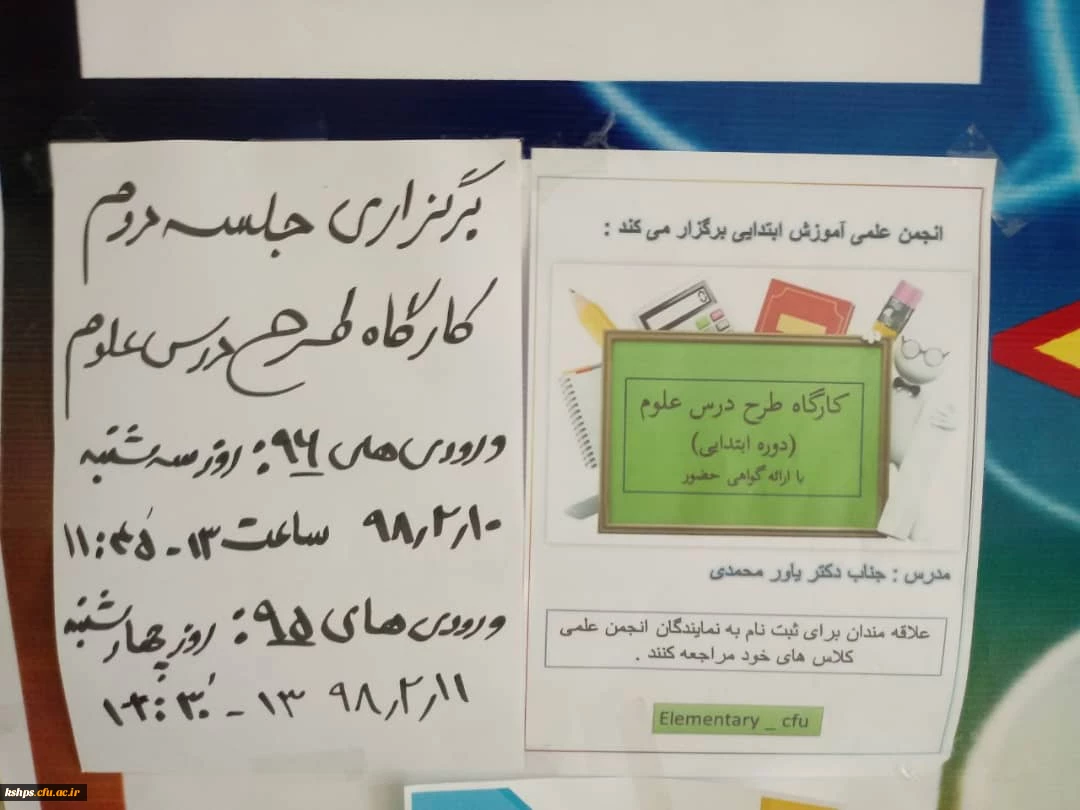 برگزاری جلسه دوم
کارگاه طرح درس علوم
ورودی های ۹۶: روز سه شنبه
۹۸٫۲٫۱۰ ساعت ۱۳ - ۱۱:۴۵
ورودی های ۹۵: روز چهارشنبه
۹۸٫۲٫۱۱ ۱۳ -
انجمن علمی آموزش ابتدایی برگزار می کند :
کارگاه طرح درس علوم
(دوره ابتدایی)
با ارائه گواهی حضور
مدرس : جناب دکتر یاور محمدی
علاقه مندان برای ثبت نام به نمایندگان انجمن علمی
کلاس های خود مراجعه کنند .
Elementary _ cfu
kshps.cfu.ac.ir